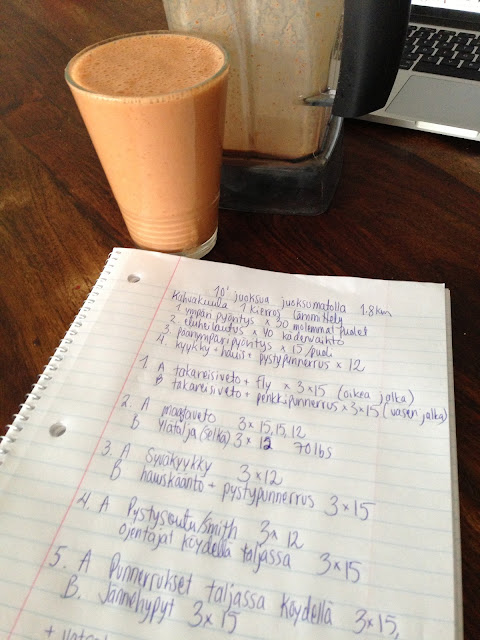 10' juoksua juoksumatolla 1.8km
Kahvakuula 1 kierros lämmittely
1. ympäri pyöritys x 30 molemmat puolet
2. etuheilautus x 40 kädenvaihto
3. päänympäripyöritys x 15/puoli
4. kyykky + hauis + pystypunnerrus x 12
1. A takareisiveto + fly x 3x15 (oikea jalka)
B takareisiveto + penkkipunnerrus x 3x15 (vasen jalka)
2. A maastaveto 3x 15,15,12
B. ylätalja (selkä) 3x 12 70lbs
3. A Syväkyykky 3x12
B hauiskääntö + pystypunnerrus 3x15
4. A Pystysoutu/smith 3x12
ojentajat köydellä taljassa 3x15
5. A Punnerrukset taljassa köydellä 3x15,
B. Jännehypyt 3x15